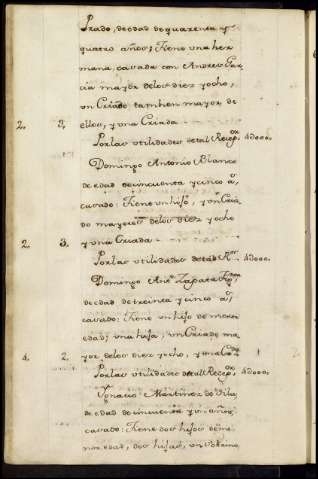 Prado, de edad de quarenta y
quatro años; tiene una her
mana casada con Andres Gar
cia mayor de los diez y ocho,
un Criado tambien mayor de
2. 2. ellos, y una Criada
Por las utilidades de tal Recepor 4000.
Domingo Antonio Blanco
de edad de cincuenta y cinco as.
casado: tiene un hijo, y un Cria
do mayores de los diez y ocho
2. 3. y una Criada
Por las utilidades de tal Ror. 4000.
Domingo Anto. Zapata
de edad de treinta y cinco as.
casado: tiene un hijo de menor
edad; una hija, un Criado ma
4. 2. yor de los diez y ocho, y una Criada
Por las utilidades de tal Recepor. 4000.
Ignacio Martinez de Vila,
de edad de cincuenta y un años,
casado: tiene dos hijos de me
nor edad, dos hijas, un sobrino